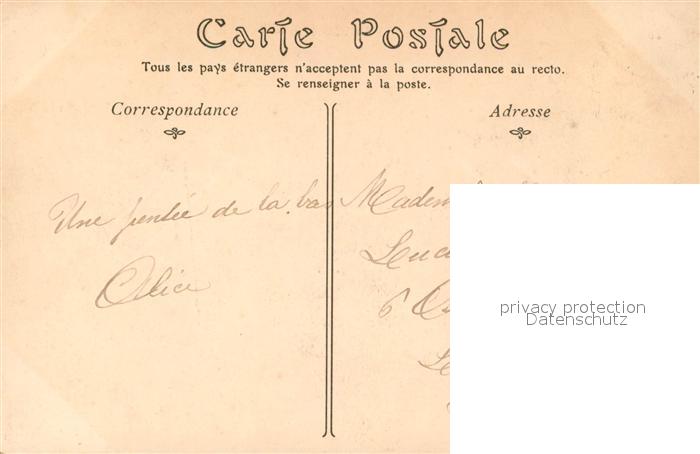 Carte Postale
Tous les pays étrangers n'acceptent pas la correspondance au recto.
Se renseigner à la poste.
Correspondance
Adresse
Une pensée de la bas
Alice
6
privacy protection
Datenschutz